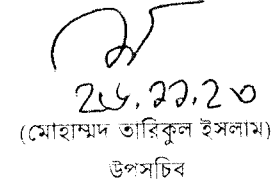 ২৬.১১.২৩
(মোহাম্মদ তারিকুল ইসলাম)
উপসচিব